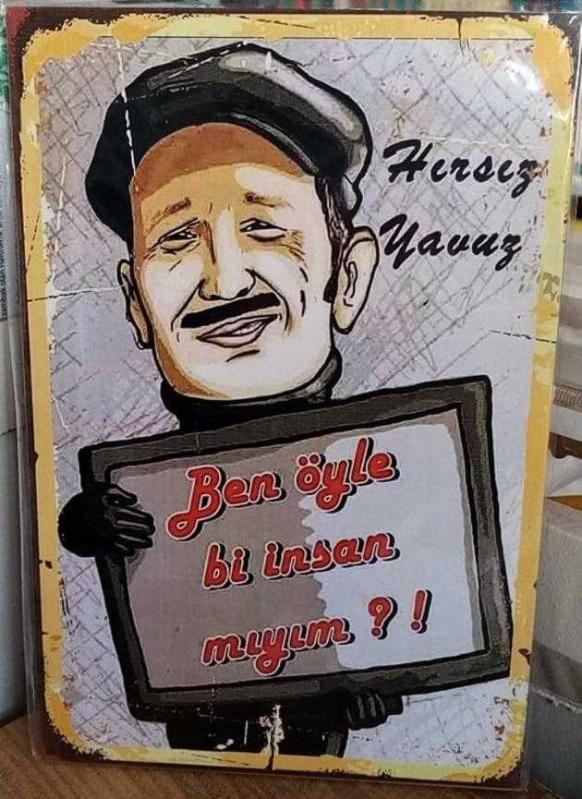 Hırsız
Yavuz
Ben öyle
bi insan
mıyım ? !